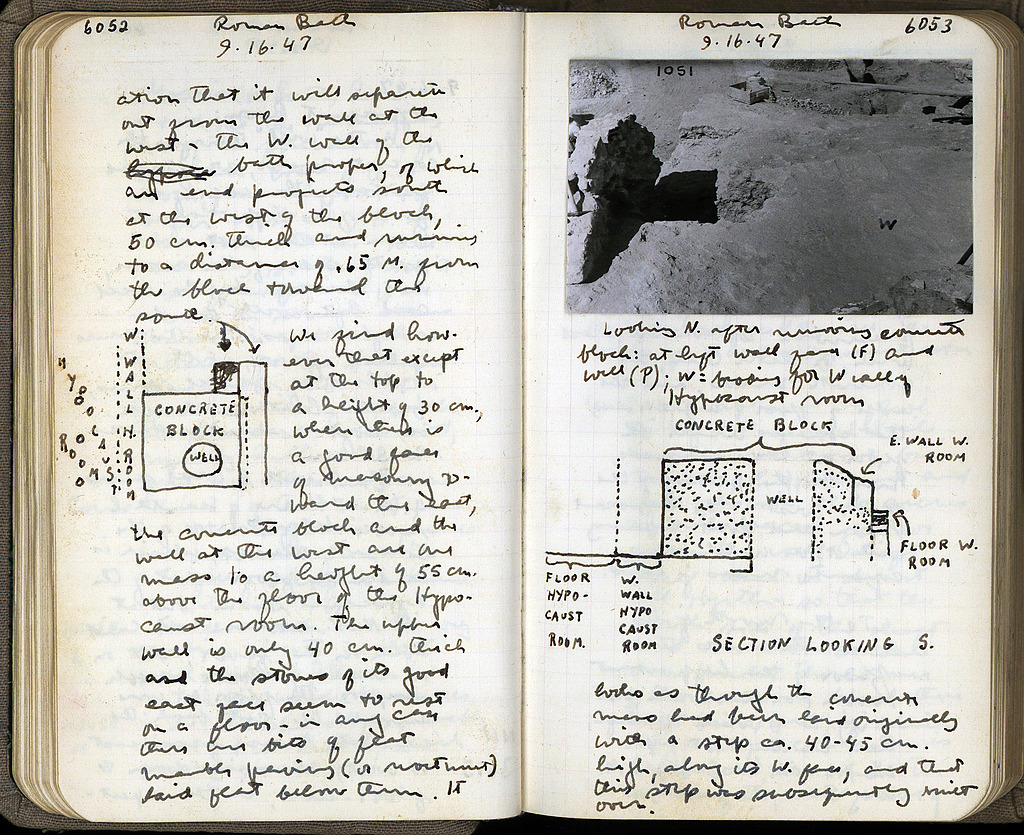 6052
Roman Bath
9.16.47
ation that it will separate
out from the wall at the
west - the W. wall of the
bath proper, of which
an end projects south
at the west of the block,
50 cm. thick and running
to a distance of .65 M. from
the block toward the
south.
We find how-
ever that except
at the top to
a height of 30 cm.,
where there is
a good face
of masonry to-
ward the east,
the concrete block and the
wall at the west are one
mass to a height of 55 cm.
above the floor of the Hypo-
caust room. The upper
wall is only 40 cm. thick
and the stones of its good
east face seem to rest
on a floor - in any case
there are bits of flat
marble paving (or
laid flat below them. It
HYPOCAUST ROOM
W WALL H. ROOM
CONCRETE
BLOCK
WELL
Roman Bath
6053
9.16.47
1051
W
Looking N. after removing concrete
block: at left wall (F) and
well (P); W = for W wall of
Hypocaust room
CONCRETE BLOCK
E. WALL W.
ROOM
WELL
FLOOR W.
ROOM
FLOOR
HYPO-
CAUST
ROOM.
W.
WALL
HYPO
CAUST
ROOM
SECTION LOOKING S.
looks as though the concrete
mass had been laid originally
with a step ca. 40-45 cm.
high, along its W. face, and that
this step was subsequently built
over.